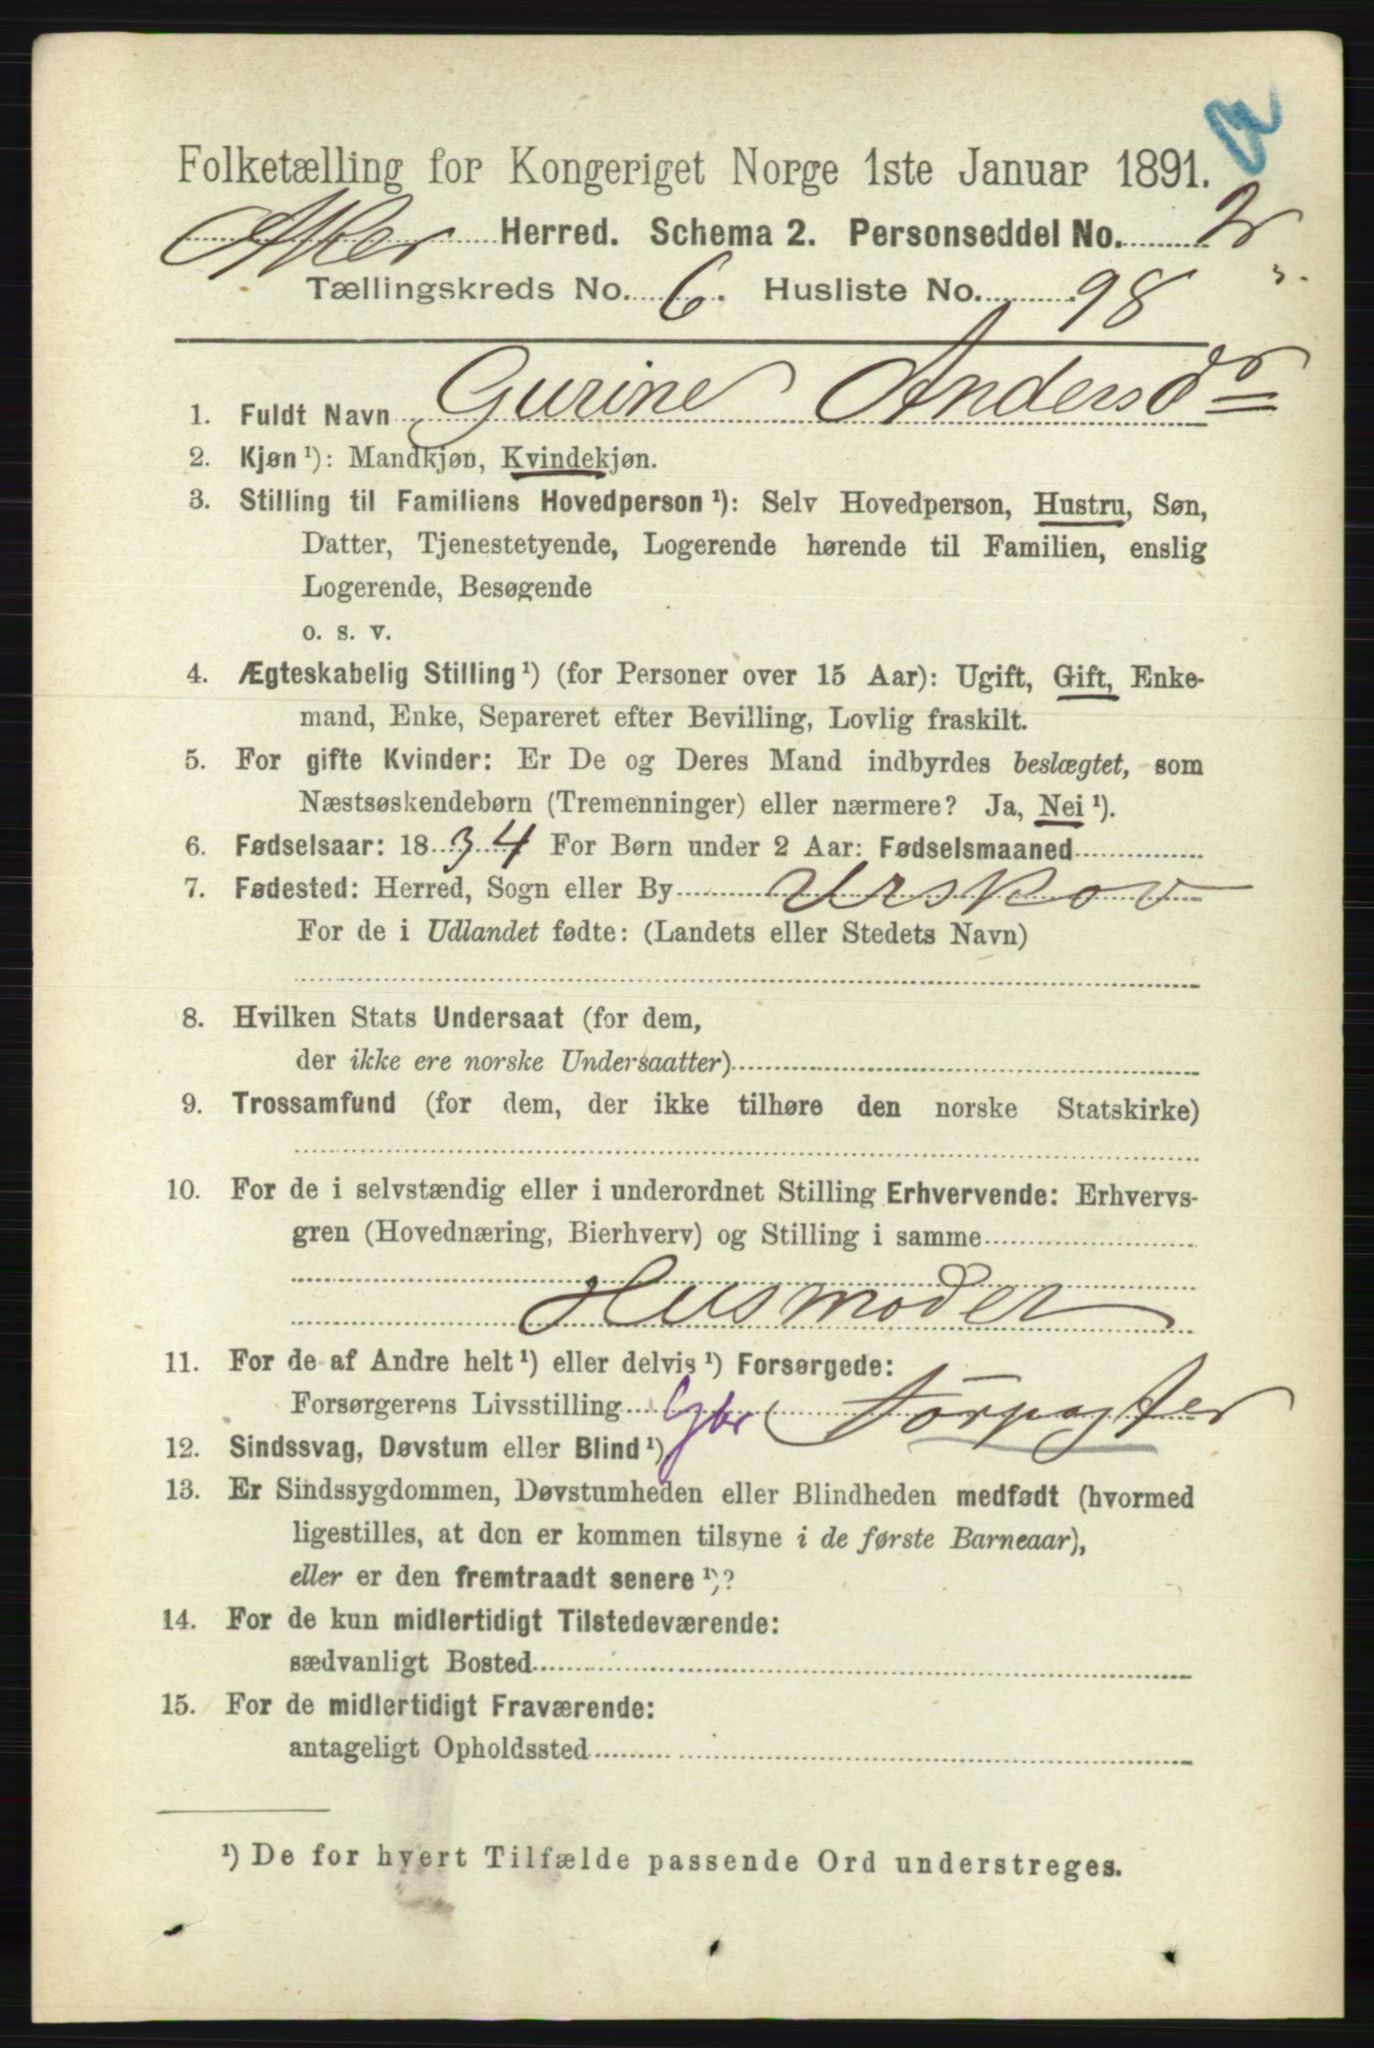 Folketælling for Kongeriget Norge 1ste Januar 1891.
Asker Herred. Schema 2. Personseddel No. 2
Tællingskreds No. 6. Husliste No. 98
1. Fuldt Navn Gurine Andersdr
2. Kjøn ¹): Mandkjøn, Kvindekjøn.
3. Stilling til Familiens Hovedperson ¹): Selv Hovedperson, Hustru, Søn,
Datter, Tjenestetyende, Logerende hørende til Familien, enslig
Logerende, Besøgende
o. s. v.
4. Ægteskabelig Stilling ¹) (for Personer over 15 Aar): Ugift, Gift, Enke-
mand, Enke, Separeret efter Bevilling, Lovlig fraskilt.
5. For gifte Kvinder: Er De og Deres Mand indbyrdes beslægtet, som
Næstsøskendebørn (Tremenninger) eller nærmere? Ja, Nei ¹).
6. Fødselsaar: 1834 For Børn under 2 Aar: Fødselsmaaned
7. Fødested: Herred, Sogn eller By Urskov
For de i Udlandet fødte: (Landets eller Stedets Navn)
8. Hvilken Stats Undersaat (for dem,
der ikke ere norske Undersaatter)
9. Trossamfund (for dem, der ikke tilhøre den norske Statskirke)
10. For de i selvstændig eller i underordnet Stilling Erhvervende: Erhvervs-
gren (Hovednæring, Bierhverv) og Stilling i samme
Husmoder
11. For de af Andre helt ¹) eller delvis ¹) Forsørgede:
Forsørgerens Livsstilling Gbr Forpagter
12. Sindssvag, Døvstum eller Blind ¹)
13. Er Sindssygdommen, Døvstumheden eller Blindheden medfødt (hvormed
ligestilles, at den er kommen tilsyne i de første Barneaar),
eller er den fremtraadt senere ¹)?
14. For de kun midlertidigt Tilstedeværende:
sædvanligt Bosted
15. For de midlertidigt Fraværende:
antageligt Opholdssted
¹) De for hvert Tilfælde passende Ord understreges.